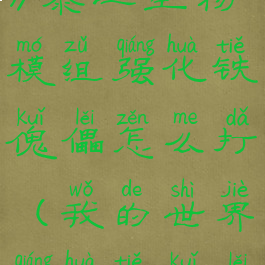 物
mó zǔ qiáng huà tiě
模组强化铁
kuǐ lěi zěn me dǎ
傀儡怎么打
wǒ de shì jiè
（我的世界
qiáng huà tiě kuǐ lěi